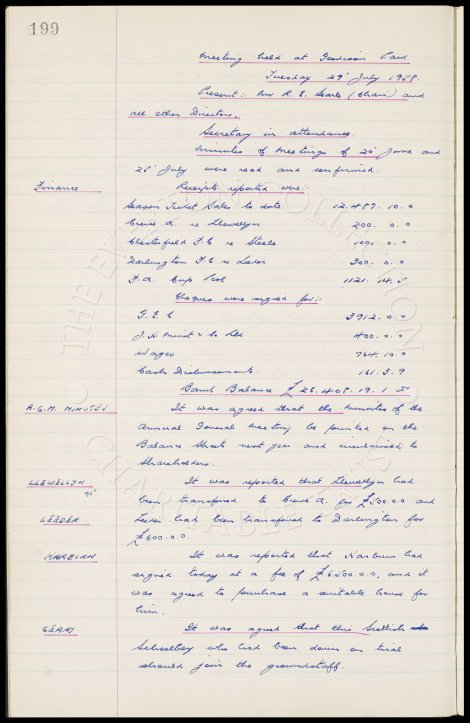 199
Meeting held at Goodison Park
Tuesday 29 July 1958.
Present: Mr R. E. Searle (Chair) and
all other Directors.
Secretary in attendance.
Minutes of meetings of 20 June and
25 July were read and confirmed.
Finance Receipts reported were:-
Season Ticket Sales to date 12.487.10.0
Crewe A re Llewellyn 200.0.0
Chesterfield F.C re Steele 100.0.0
Darlington F.C re Leeder 300.0.0
F.A. Cup Pool 1121.14.5
Cheques were signed for:-
G.E.C 3912.0.0
J.H. & Co Ltd 400.0.0
Wages 964.10.0
Cash Disbursements 161.3.9
Bank Balance £26.408.19.1
A.G.M. MINUTES It was agreed that the minutes of the
Annual General Meeting be printed on the
Balance Sheets next year and circularised to
Shareholders.
LLEWELLYN It was reported that Llewellyn had
been transferred to Crewe A. for £500.0.0 and
LEEDER Leeder had been transferred to Darlington for
£600.0.0.
HARBURN It was reported that Harburn had
signed today at a fee of £6500.0.0, and it
was agreed to purchase a suitable house for
him.
GEARY It was agreed that this Scottish
Schoolboy who had been down on trial
should join the groundstaff.
THE EVERTON COLLECTION
CHARITABLE TRUST